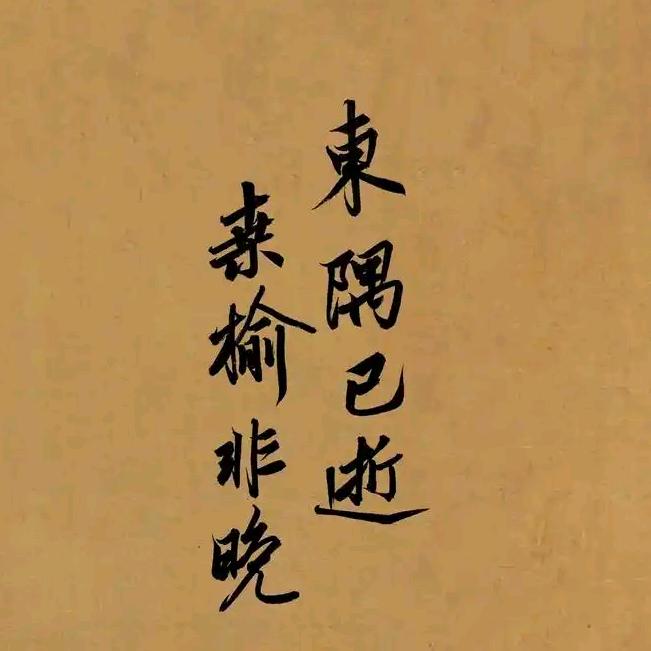 東隅已逝
桒榆非晚